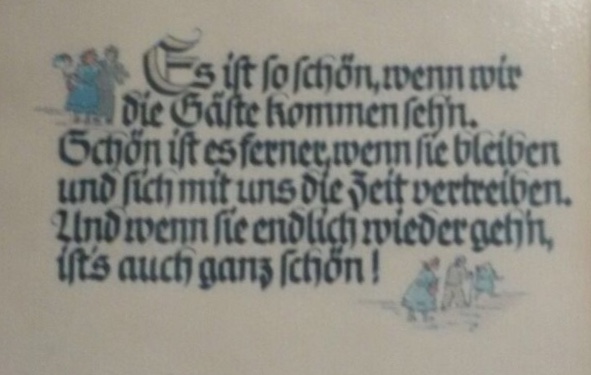 Es ist so schön, wenn wir
die Gäste kommen seh'n.
Schön ist es ferner, wenn sie bleiben
und sich mit uns die Zeit vertreiben.
Und wenn sie endlich wieder geh'n,
ist's auch ganz schön!